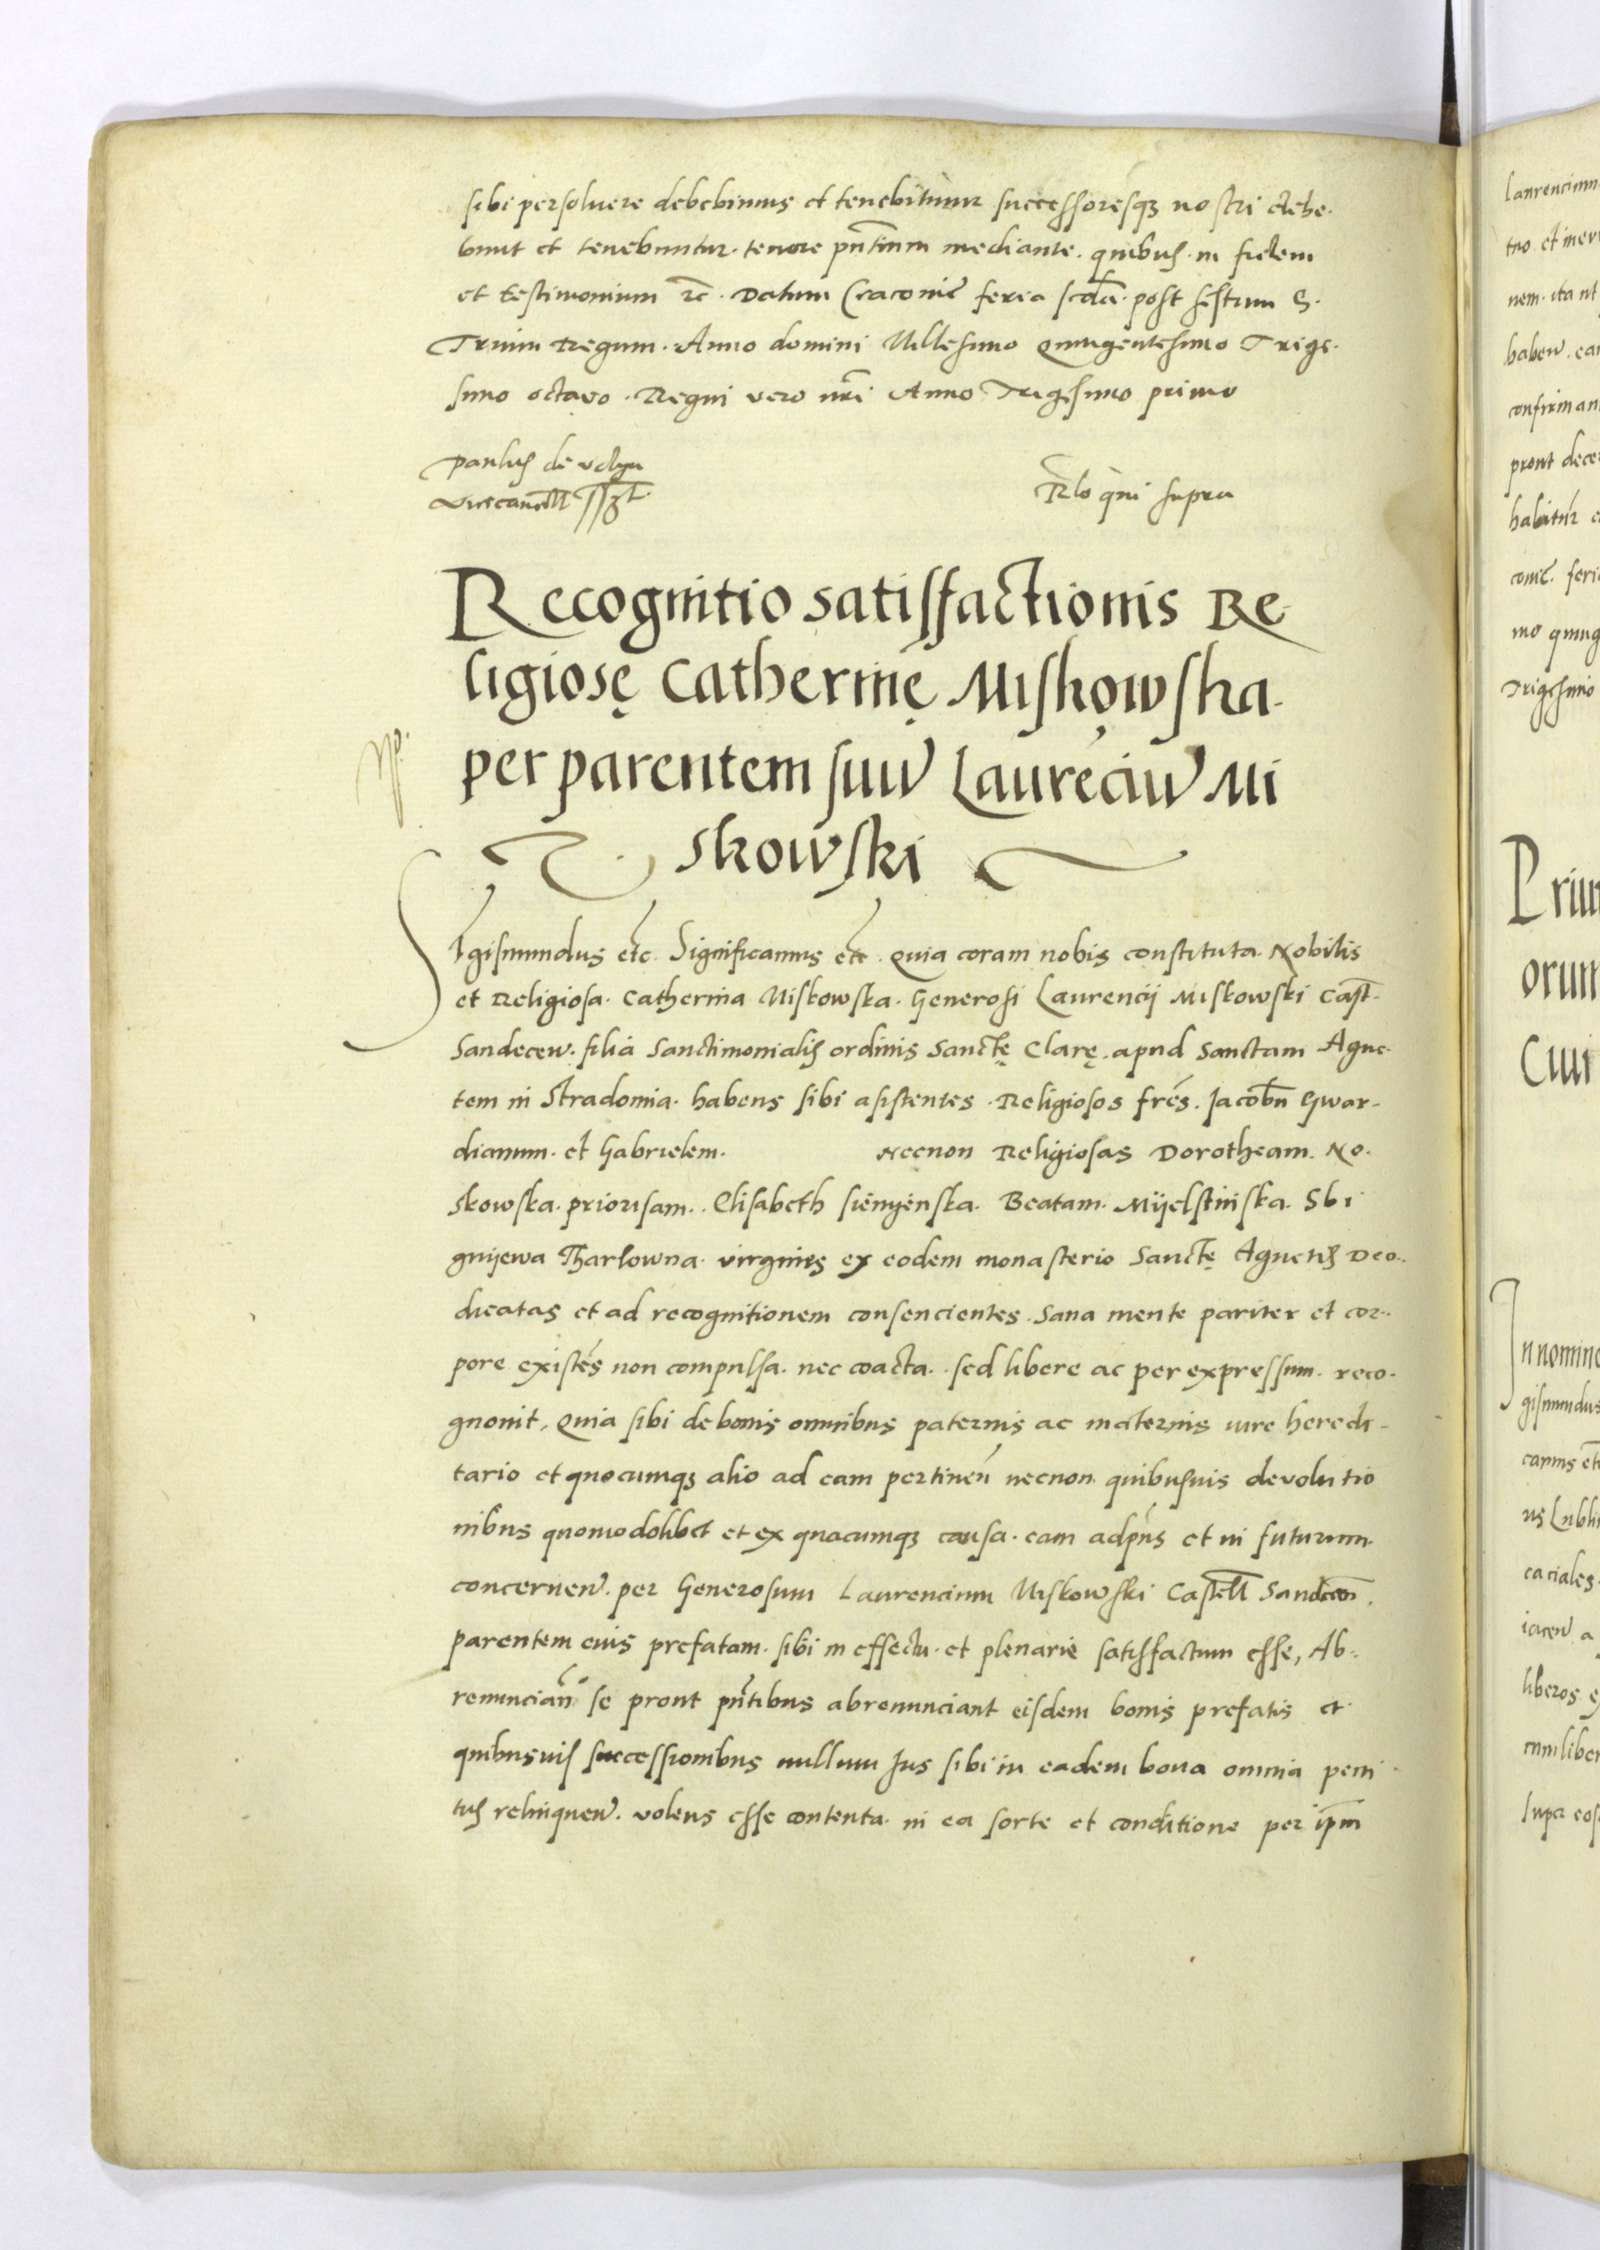 sibi persoluere debebimus et tenebimur successoresq3 nostri debe·
bunt et tenebuntur· tenore pn̄tium mediante· quibus· in fidem
et testimonium rc̄· Datum Cracoviē feria scd̄a· post festum S·
Trium Regum· Anno domini Millesimo Quingentesimo Trige·
simo octavo· Regni vero nr̄i Anno Trigesimo primo
paulus de volya
vicecancell̄ sszt·
Rl̄o qui supra
Recognitio satisfactionis Re-
ligiosę Catherinę Miskowska·
per parentem suu̅ Laurēciu̅ Mi
skowski
Sigismundus etc̄· Significamus etc̄· Quia coram nobis constituta Nobilis
et Religiosa· Catherina Miskowska· Generosi Laurencij Miskowski Cast̄·
Sandecen̄· filia Sanctimonialis ordinis Sanctę Clarę· apud Sanctam Agne·
tem in Stradomia· habens sibi asistentes· Religiosos frēs· Jacobū Gwar-
dianum· et Gabrielem· Necnon Religiosas Dorotheam· No·
skowska· priorisam·· Elisabeth sienyenska· Beatam· Mijelstinska· Sbi
gnijewa Tharlowna· virgines ex eodem monasterio Sanctę Agnetis Deo··
dicatas et ad recognitionem consencientes· Sana mente pariter et cor··
pore existēs non compulsa· nec coacta·· sed libere ac per expressum· reco·
gnouit, Quia sibi de bonis omnibus paternis ac maternis iure heredi-
tario et quocumq3 alio ad eam pertinen̄ necnon quibusuis devolutio
nibus quomodolibet et ex quacumq3 causa· eam ad pn̄s et in futurum
concernen̄· per Generosum Laurencium Miskowski Castell̄ Sandcen̄·
parentem eius prefatam· sibi in effectu· et plenarie satisfactum esse, Ab··
renuncian̄ se prout pn̄tibus abrenunciant eisdem bonis prefatis et
quibusuis successionibus nullum Jus sibi in eadem bona omnia peni·
tus relinquen̄· volens esse contenta· in ea sorte et conditione per ip̄m